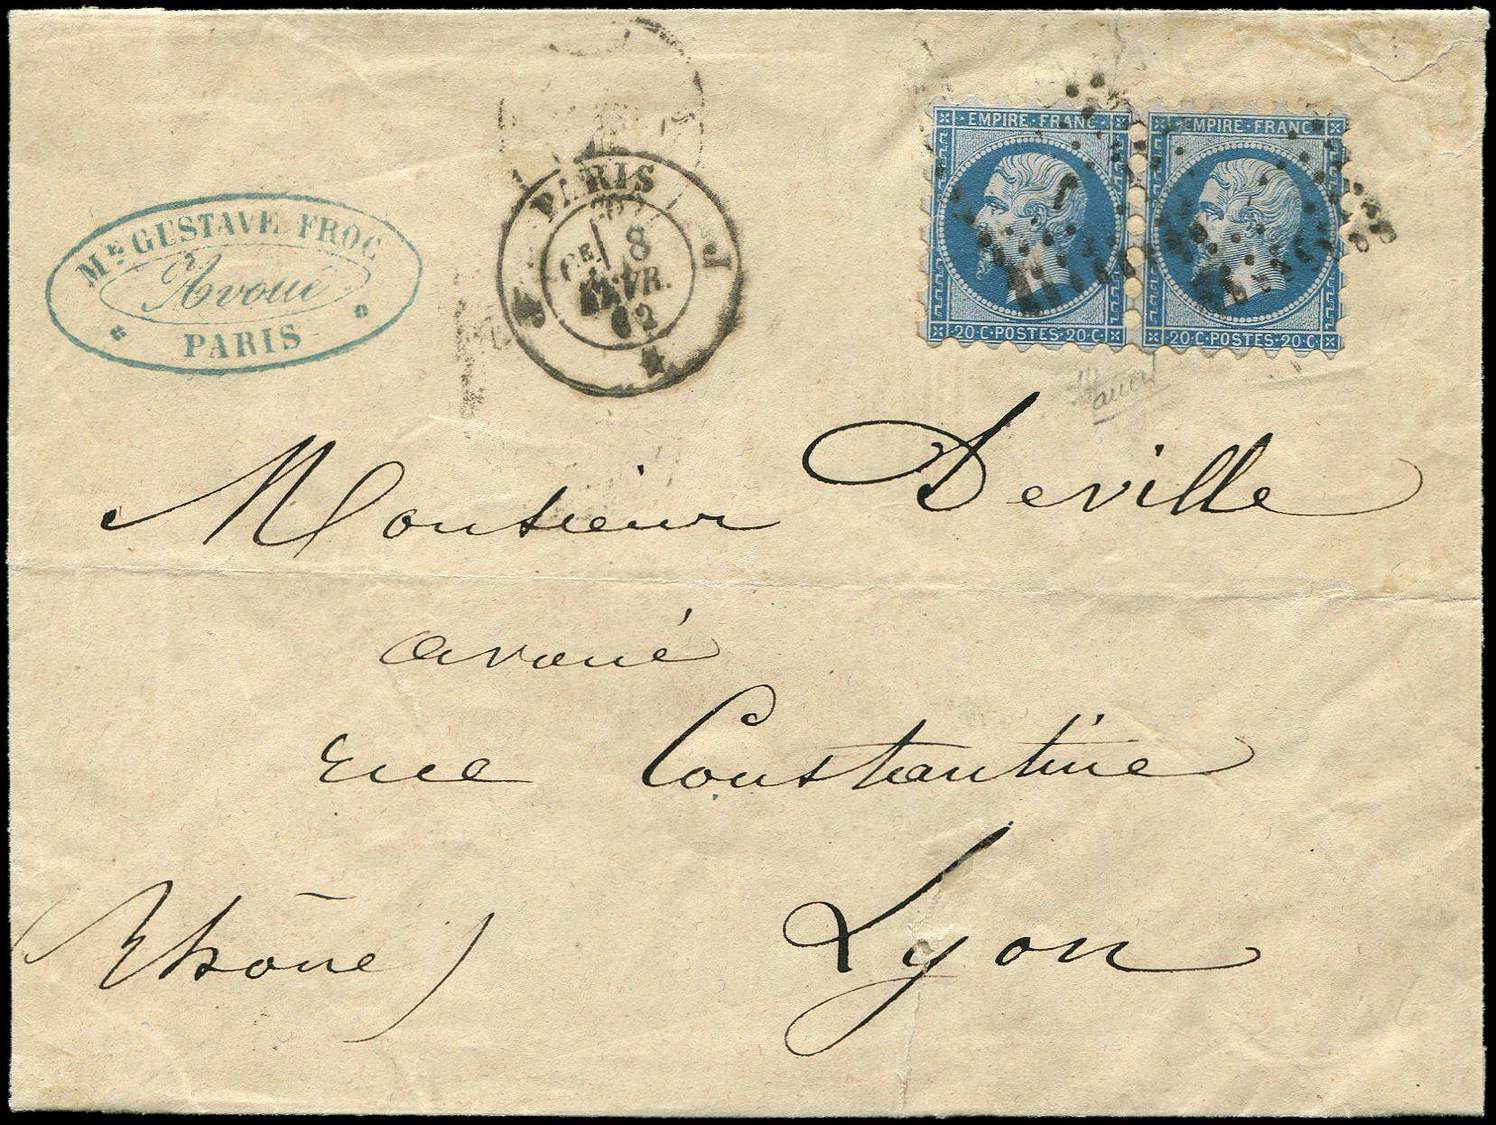 Mᵉ GUSTAVE FROC
Avoué
PARIS
PARIS
8
AVR.
62
J
EMPIRE · FRANC ·
20·C·POSTES·20·C
EMPIRE·FRANC
20·C·POSTES·20·C
Monsieur Deville
avoué
rue Constantine
Lyon
(Rhône)